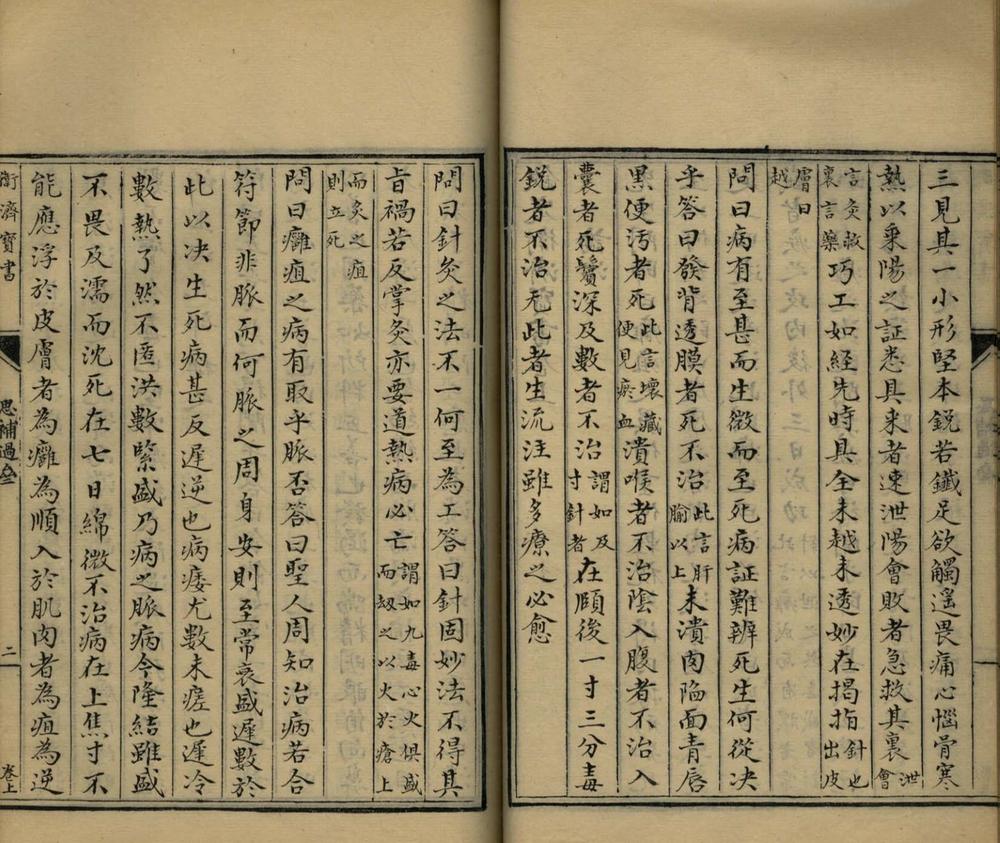 三見其一小形堅本鋭若鐵足欲觸遥畏痛心惱骨寒
熱以乘陽之証悉具来者速泄陽會敗者急救其裏泄會
言灸故裏言藥巧工如經先時具全未越未透妙在揭指針也出皮
膚曰越
問曰病有至甚而生微而至死病証難辨死生何從决
乎答曰發背透膜者死不治此言肝腧以上未潰肉陥面青唇
黒便汚者死此言壞臓便見瘀血潰喉者不治陰入腹者不治入
囊者死鬢深及數者不治謂如及寸針者在頤後一寸三分毒
鋭者不治无此者生流注雖多療之必愈
問曰針灸之法不一何至為工答曰針固妙法不得其
旨禍若反掌灸亦要道熱病必亡謂如九毒心火俱盛而刼之以火於瘡上
而灸之疽則立死
問曰癰疽之病有取乎脈否答曰聖人周知治病若合
符節非脈而何脈之周身安則至常衰盛遲數於
此以决生死病甚反遲逆也病痿尤數未瘥也遲冷
數熱了然不匿洪數緊盛乃病之脈病今隆結雖盛
不畏及濡而沈死在七日綿微不治病在上焦寸不
能應浮於皮膚者為癰為順入於肌肉者為疽為逆
衛濟寳書
思補過叄
二
卷上